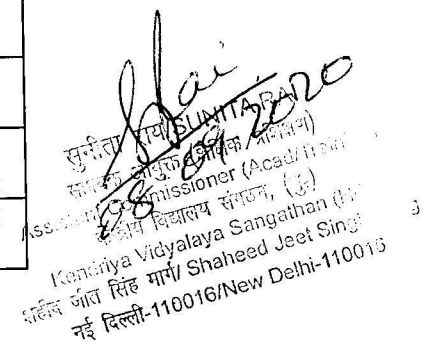 Rai
08/09/2020
सुनीता राय/SUNITA RAI
सहायक आयुक्त (शैक्षिक/प्रशिक्षण)
Assistant Commissioner (Acad/Train
केन्द्रीय विद्यालय संगठन, (मु
Kendriya Vidyalaya Sangathan (H
शहीद जीत सिंह मार्ग/ Shaheed Jeet Singh
नई दिल्ली-110016/New Delhi-110016